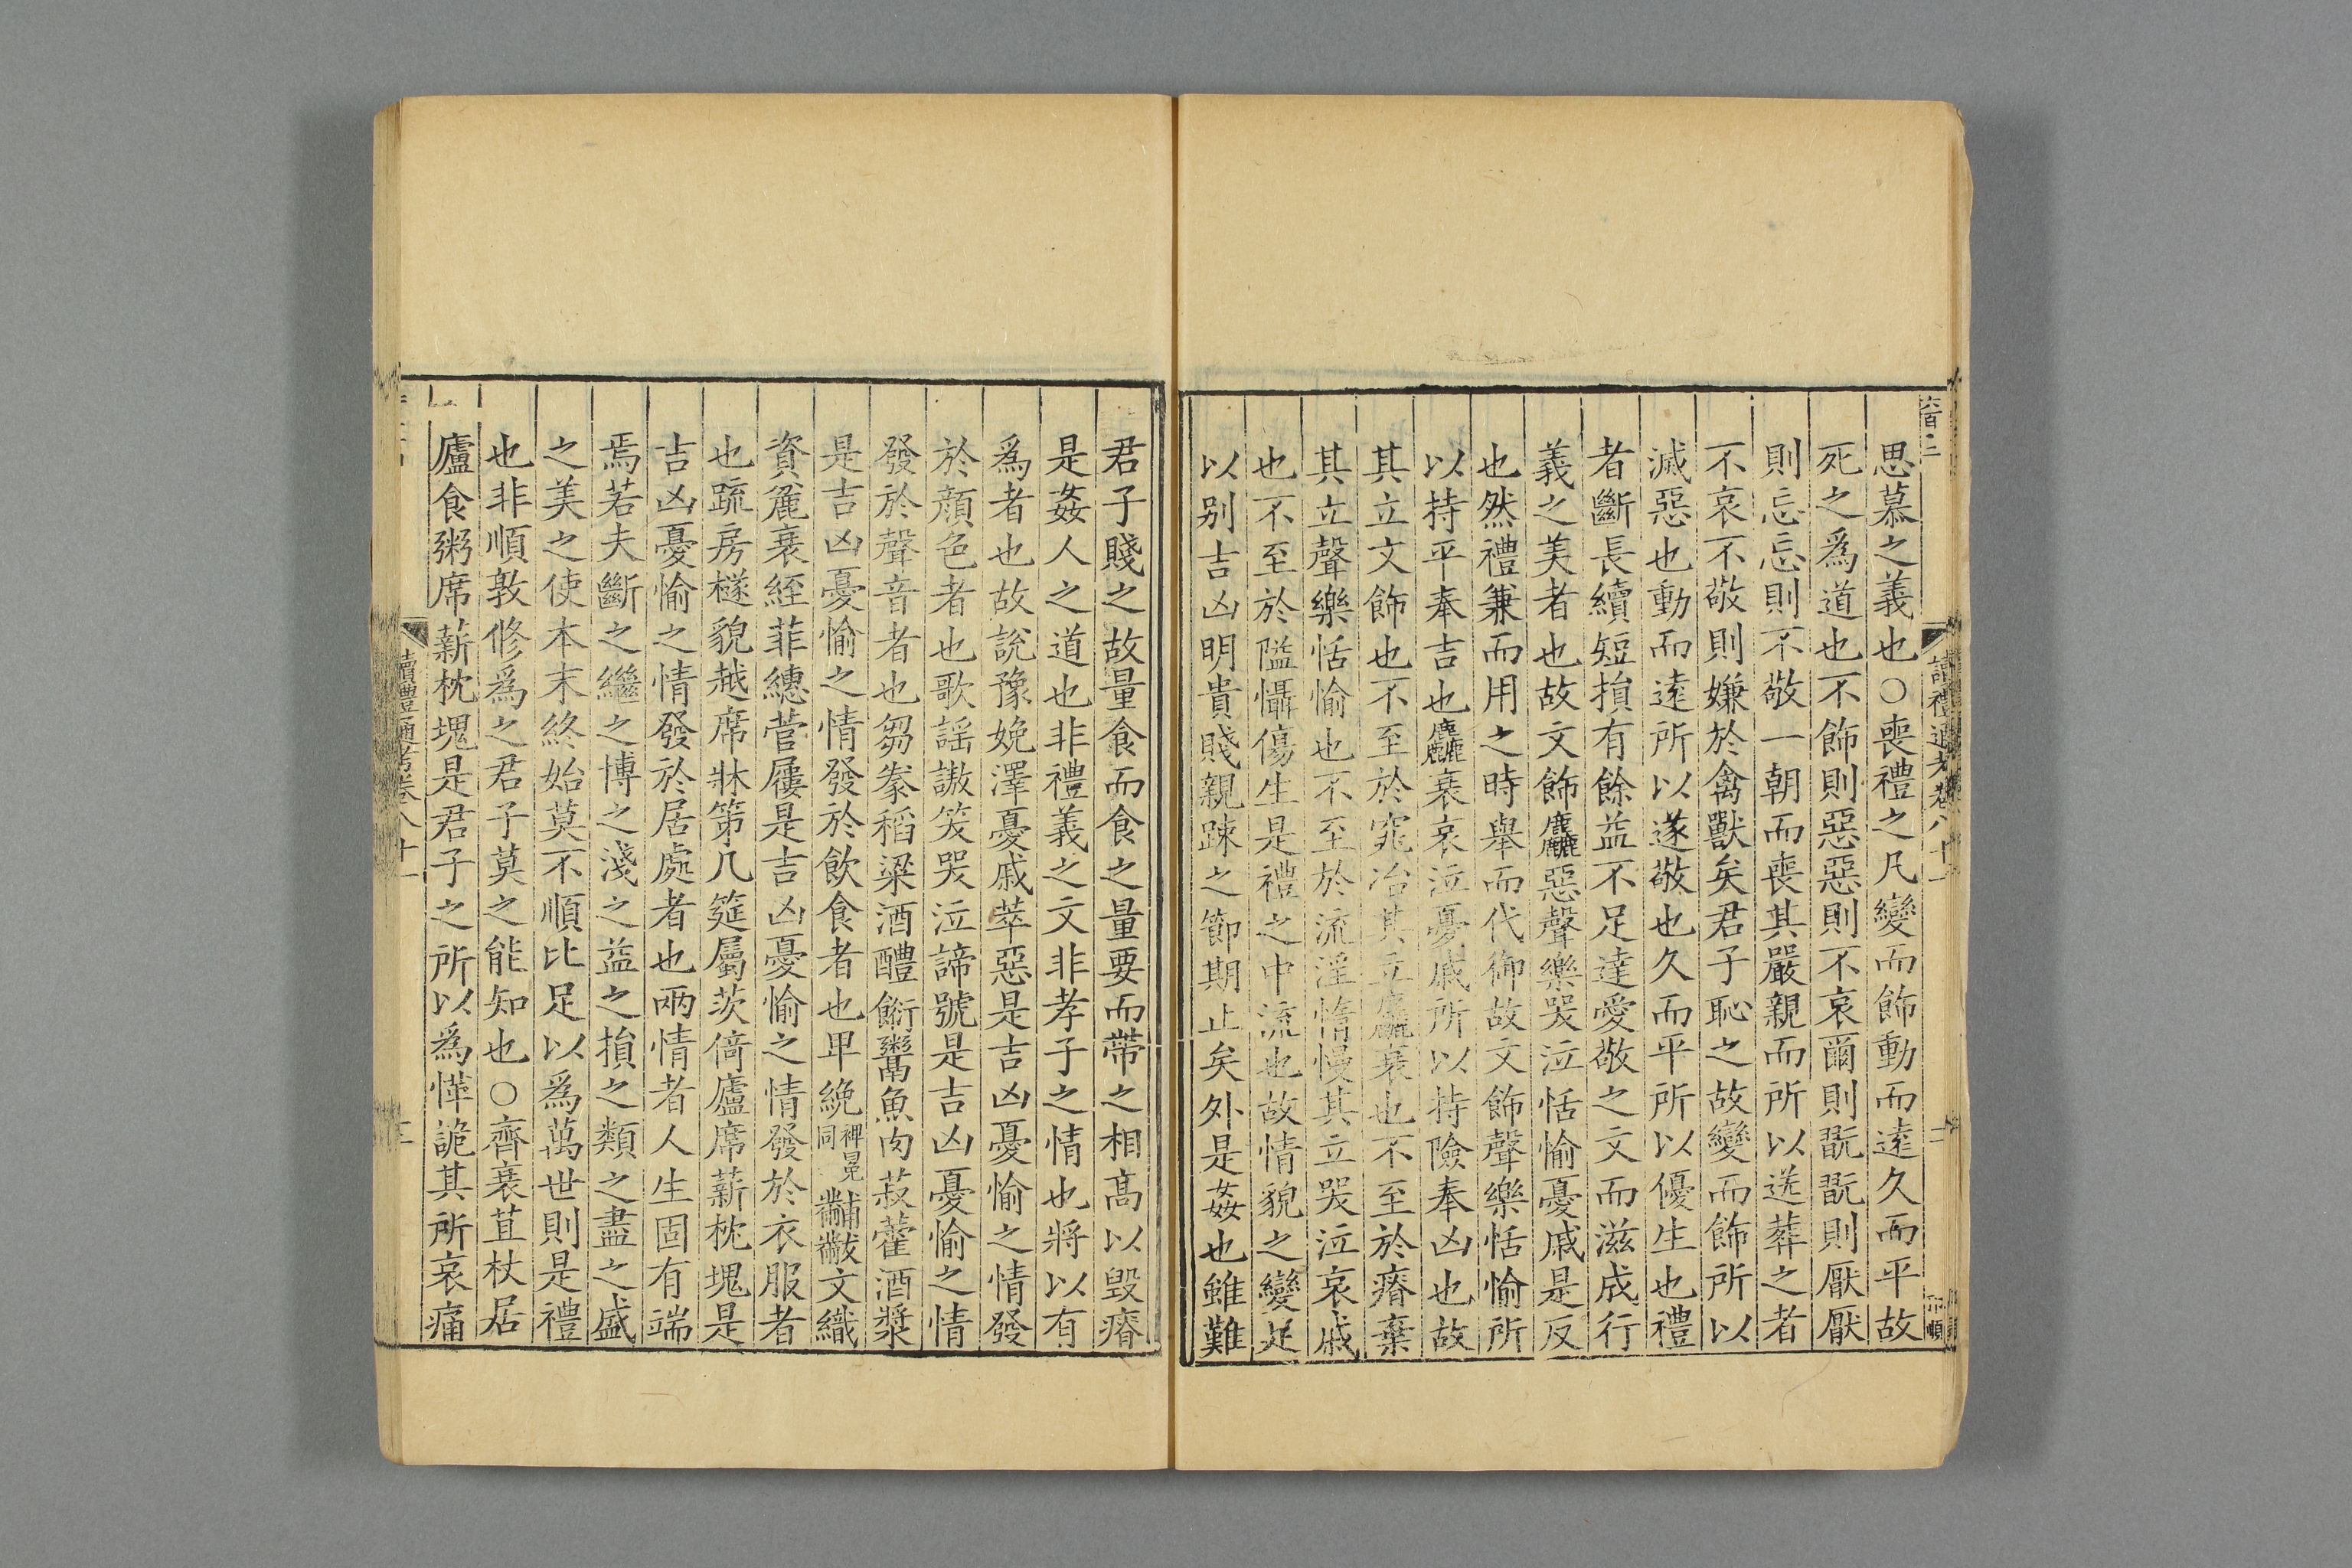 讀禮通考卷八十一
二
思慕之義也○喪禮之凡變而飾動而逺久而平故
死之爲道也不飾則惡惡則不哀爾則翫翫則厭厭
則忘忘則不敬一朝而喪其嚴親而所以送葬之者
不哀不敬則嫌於禽獸矣君子恥之故變而飾所以
滅惡也動而逺所以遂敬也久而平所以優生也禮
者斷長續短損有餘益不足達愛敬之文而滋成行
義之美者也故文飾麤惡聲樂哭泣恬愉憂戚是反
也然禮兼而用之時舉而代御故文飾聲樂恬愉所
以持平奉吉也麤衰哀泣憂戚所以持險奉凶也故
其立文飾也不至於窕冶其立麤衰也不至於瘠棄
其立聲樂恬愉也不至於流淫惰慢其立哭泣哀戚
也不至於隘懾傷生是禮之中流也故情貌之變足
以别吉凶明貴賤親踈之節期止矣外是姦也雖難
君子賤之故量食而食之量要而帶之相高以毁瘠
是姦人之道也非禮義之文非孝子之情也將以有
爲者也故說豫娩澤憂戚萃惡是吉凶憂愉之情發
於顔色者也歌謡謸笑哭泣諦號是吉凶憂愉之情
發於聲音者也芻豢稻粱酒醴餰鬻魚肉菽藿酒漿
是吉凶憂愉之情發於飲食者也卑絻裨冕同黼黻文織
資麤衰絰菲繐菅屨是吉凶憂愉之情發於衣服者
也疏房檖貌越席牀第几筵屬茨倚廬席薪枕塊是
吉凶憂愉之情發於居處者也兩情者人生固有端
焉若夫斷之繼之博之淺之益之損之類之盡之盛
之美之使本末終始莫不順比足以爲萬世則是禮
也非順孰修爲之君子莫之能知也○齊衰苴杖居
廬食粥席薪枕塊是君子之所以爲愅詭其所哀痛
讀禮通考卷八十一